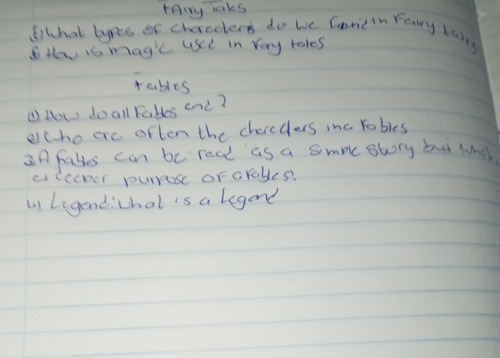 Fairy Tales
1) What types of characters do we found in Fairy tales
2) How is magic used in fairy tales
Fables
1) How do all Fables end?
2) who are often the characters in a Fables
3) A fables can be read as a simple story but what
a deeper purpose of a fables?
4) Legend: what is a Legend